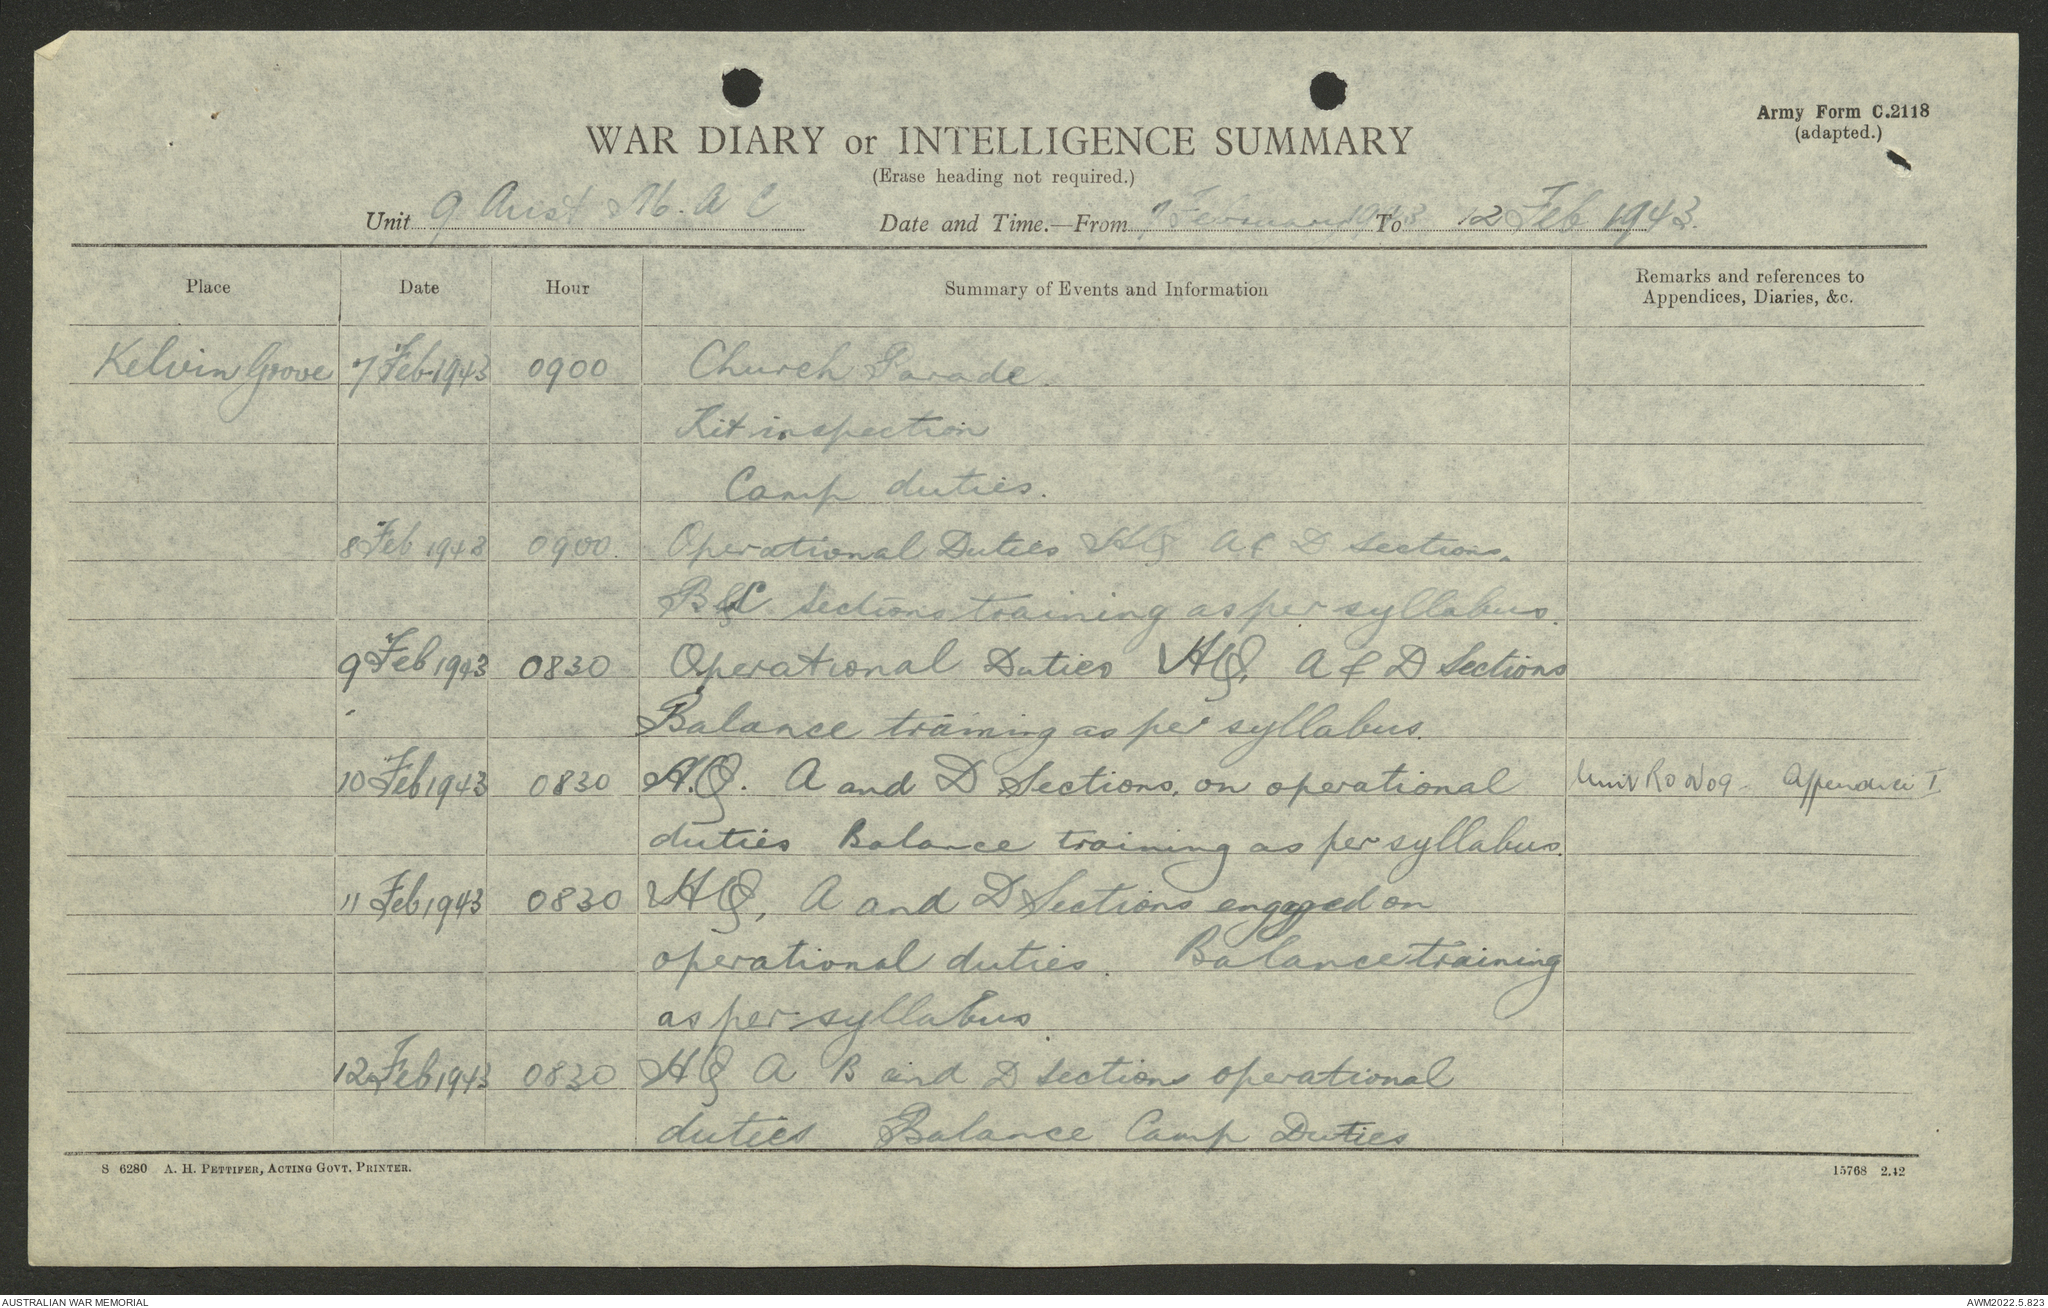 Army Form C.2118
(adapted.)
WAR DIARY or INTELLIGENCE SUMMARY
(Erase heading not required.)
Unit 9 Aust M. A C Date and Time.—From 7 February 1943 To 12 Feb 1943.
Place Date Hour Summary of Events and Information Remarks and references to
Appendices, Diaries, &c.
Kelvin Grove 7 Feb 1943 0900 Church Parade.
Kit inspection
Camp duties.
8 Feb 1943 0900. Operational Duties HQ A & D Sections.
B & C Sections training as per syllabus.
9 Feb 1943 0830 Operational Duties HQ, A & D Sections
Balance training as per syllabus.
10 Feb 1943 0830 H.Q. A and D Sections, on operational Unit RO No 9. Appendice I
duties Balance training as per syllabus.
11 Feb 1943 0830 HQ, A and D Sections engaged on
operational duties. Balance training
as per syllabus.
12 Feb 1943 0830 HQ A B and D Sections operational
duties Balance Camp Duties
S 6280 A. H. PETTIFER, ACTING GOVT. PRINTER. 15768 2.42
AUSTRALIAN WAR MEMORIAL AWM2022.5.823